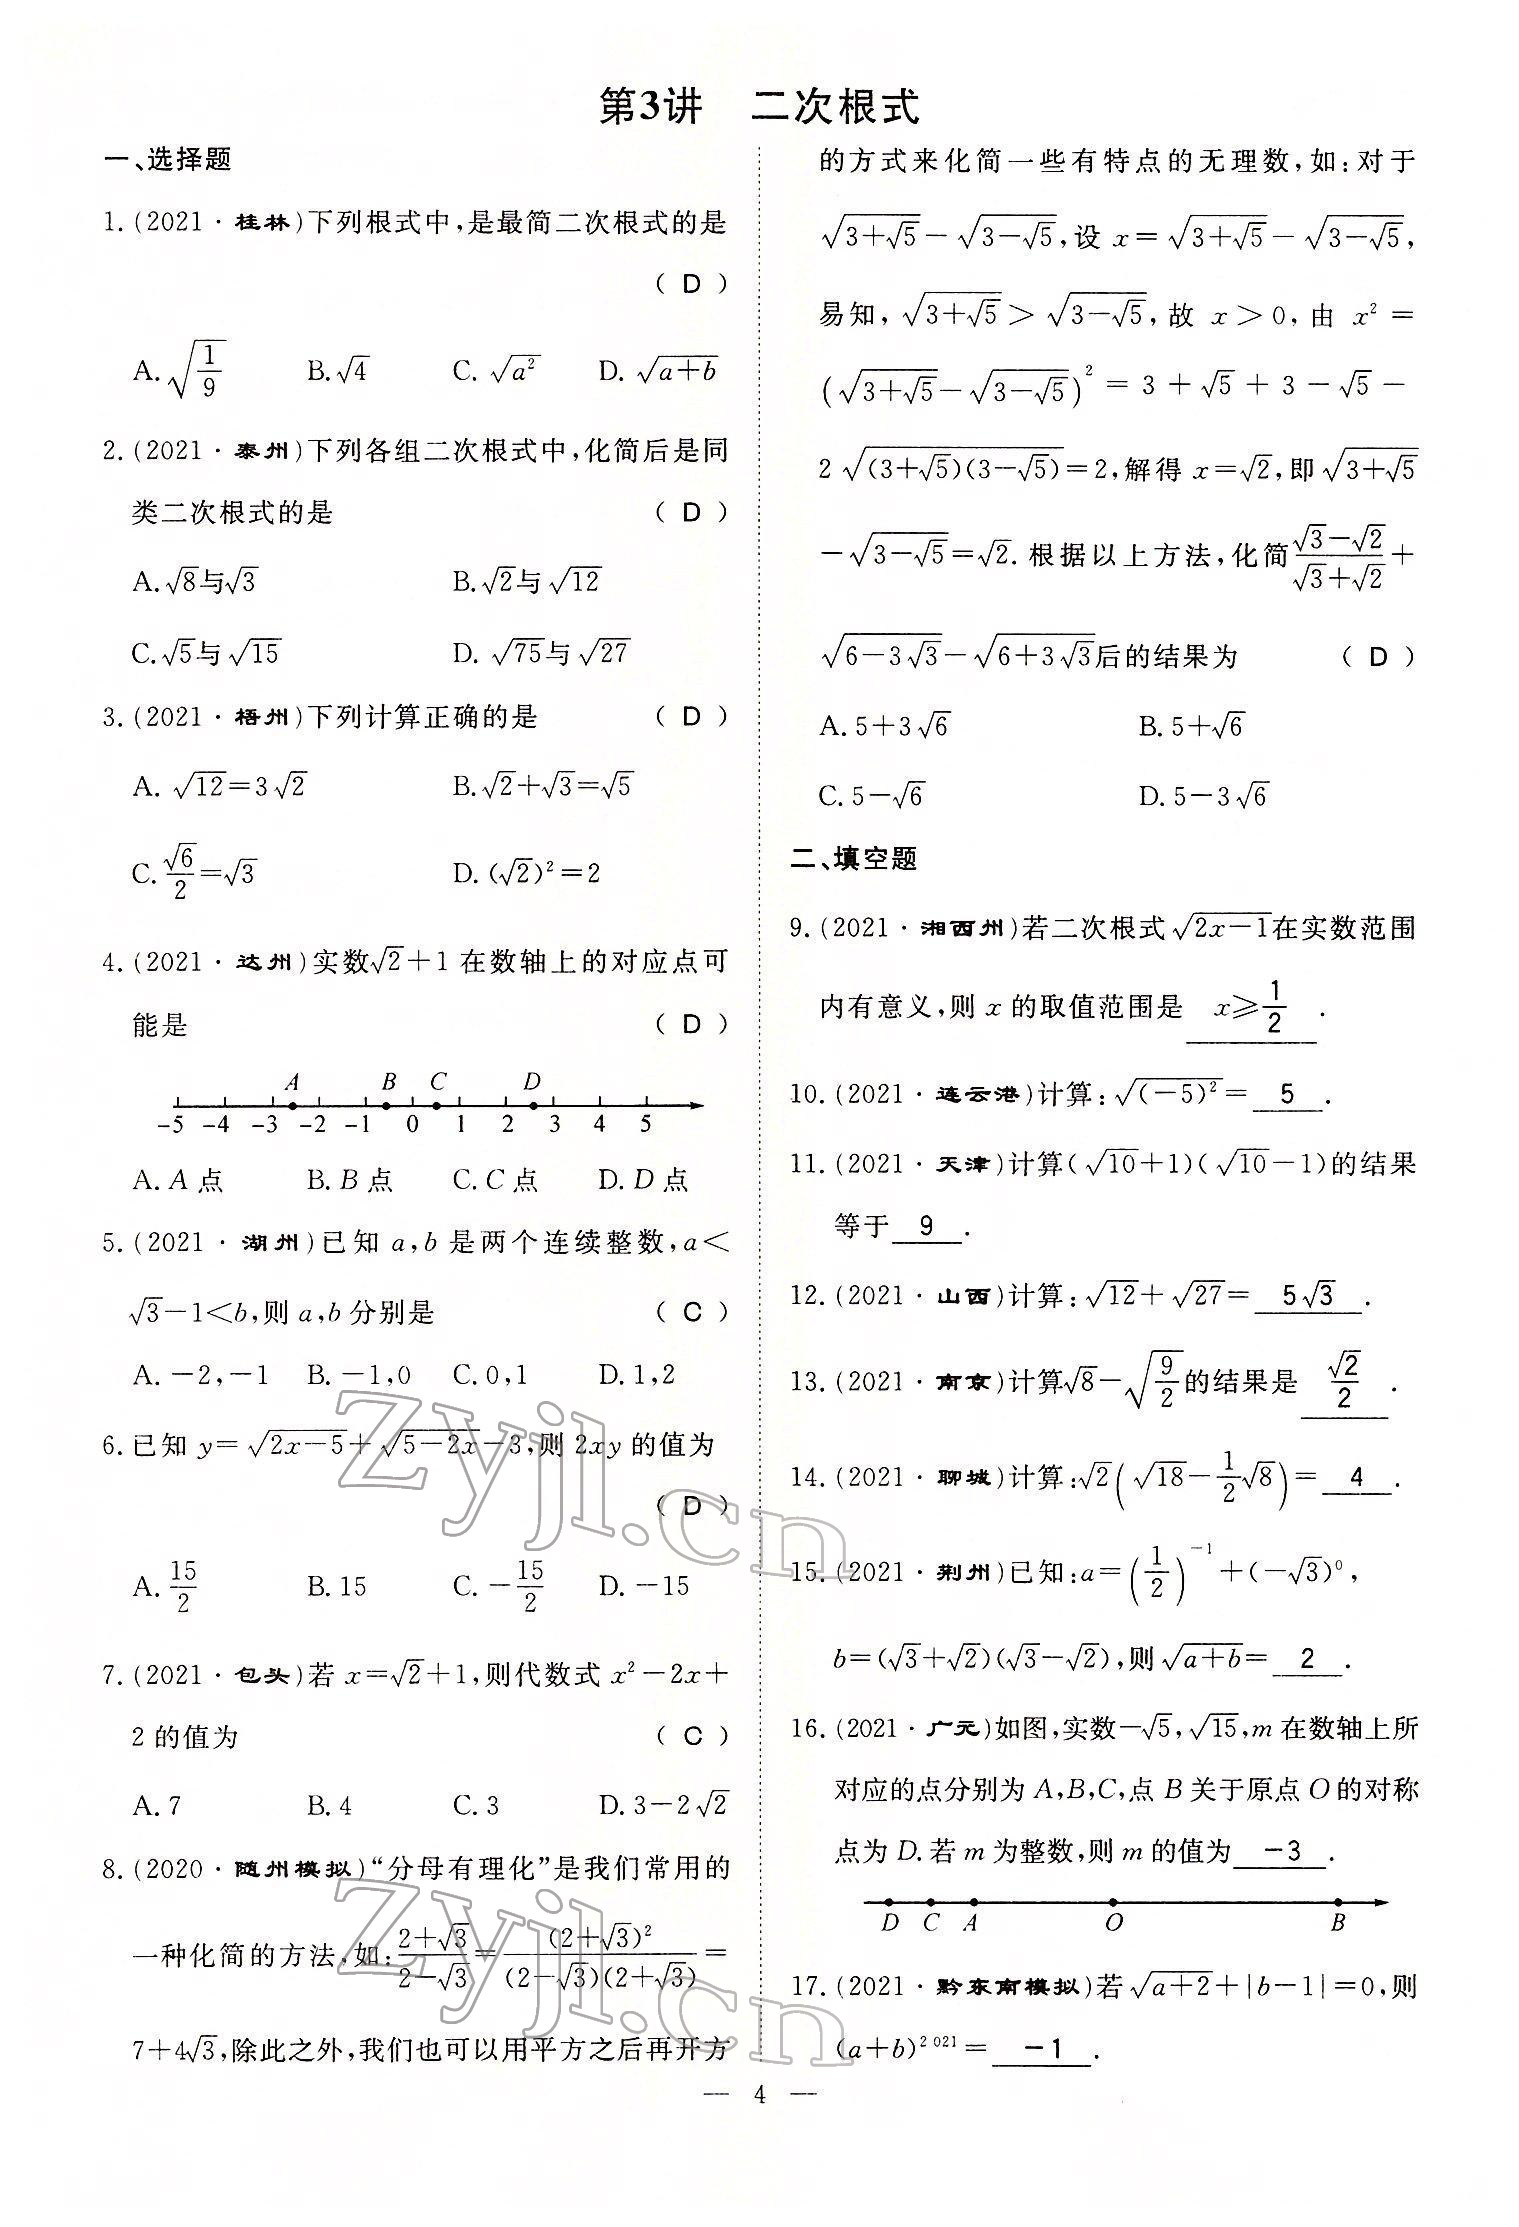 第3讲 二次根式
一、选择题
1.(2021·桂林)下列根式中,是最简二次根式的是
( D )
A.√(1/9) B.√4 C.√(a²) D.√(a+b)
2.(2021·泰州)下列各组二次根式中,化简后是同
类二次根式的是 ( D )
A.√8与√3 B.√2与√12
C.√5与√15 D.√75与√27
3.(2021·梧州)下列计算正确的是 ( D )
A.√12=3√2 B.√2+√3=√5
C.√6/2=√3 D.(√2)²=2
4.(2021·达州)实数√2+1在数轴上的对应点可
能是 ( D )
A B C D
-5 -4 -3 -2 -1 0 1 2 3 4 5
A.A点 B.B点 C.C点 D.D点
5.(2021·湖州)已知a,b是两个连续整数,a<
√3-1<b,则a,b分别是 ( C )
A.-2,-1 B.-1,0 C.0,1 D.1,2
6.已知y=√(2x-5)+√(5-2x)-3,则2xy的值为
( D )
A.15/2 B.15 C.-15/2 D.-15
7.(2021·包头)若x=√2+1,则代数式x²-2x+
2的值为 ( C )
A.7 B.4 C.3 D.3-2√2
8.(2020·随州模拟)“分母有理化”是我们常用的
一种化简的方法,如:(2+√3)/(2-√3)=(2+√3)²/((2-√3)(2+√3))=
7+4√3,除此之外,我们也可以用平方之后再开方
的方式来化简一些有特点的无理数,如:对于
√(3+√5)-√(3-√5),设x=√(3+√5)-√(3-√5),
易知,√(3+√5)>√(3-√5),故x>0,由x²=
(√(3+√5)-√(3-√5))²=3+√5+3-√5-
2√((3+√5)(3-√5))=2,解得x=√2,即√(3+√5)
-√(3-√5)=√2.根据以上方法,化简(√3-√2)/(√3+√2)+
√(6-3√3)-√(6+3√3)后的结果为 ( D )
A.5+3√6 B.5+√6
C.5-√6 D.5-3√6
二、填空题
9.(2021·湘西州)若二次根式√(2x-1)在实数范围
内有意义,则x的取值范围是 x≥1/2 .
10.(2021·连云港)计算:√((-5)²)= 5 .
11.(2021·天津)计算(√10+1)(√10-1)的结果
等于 9 .
12.(2021·山西)计算:√12+√27= 5√3 .
13.(2021·南京)计算√8-√(9/2)的结果是 √2/2 .
14.(2021·聊城)计算:√2(√18-1/2√8)= 4 .
15.(2021·荆州)已知:a=(1/2)⁻¹+(-√3)⁰,
b=(√3+√2)(√3-√2),则√(a+b)= 2 .
16.(2021·广元)如图,实数-√5,√15,m在数轴上所
对应的点分别为A,B,C,点B关于原点O的对称
点为D.若m为整数,则m的值为 -3 .
D C A O B
17.(2021·黔东南模拟)若√(a+2)+|b-1|=0,则
(a+b)²⁰²¹= -1 .
— 4 —
zyjl.cn
zyjl.cn